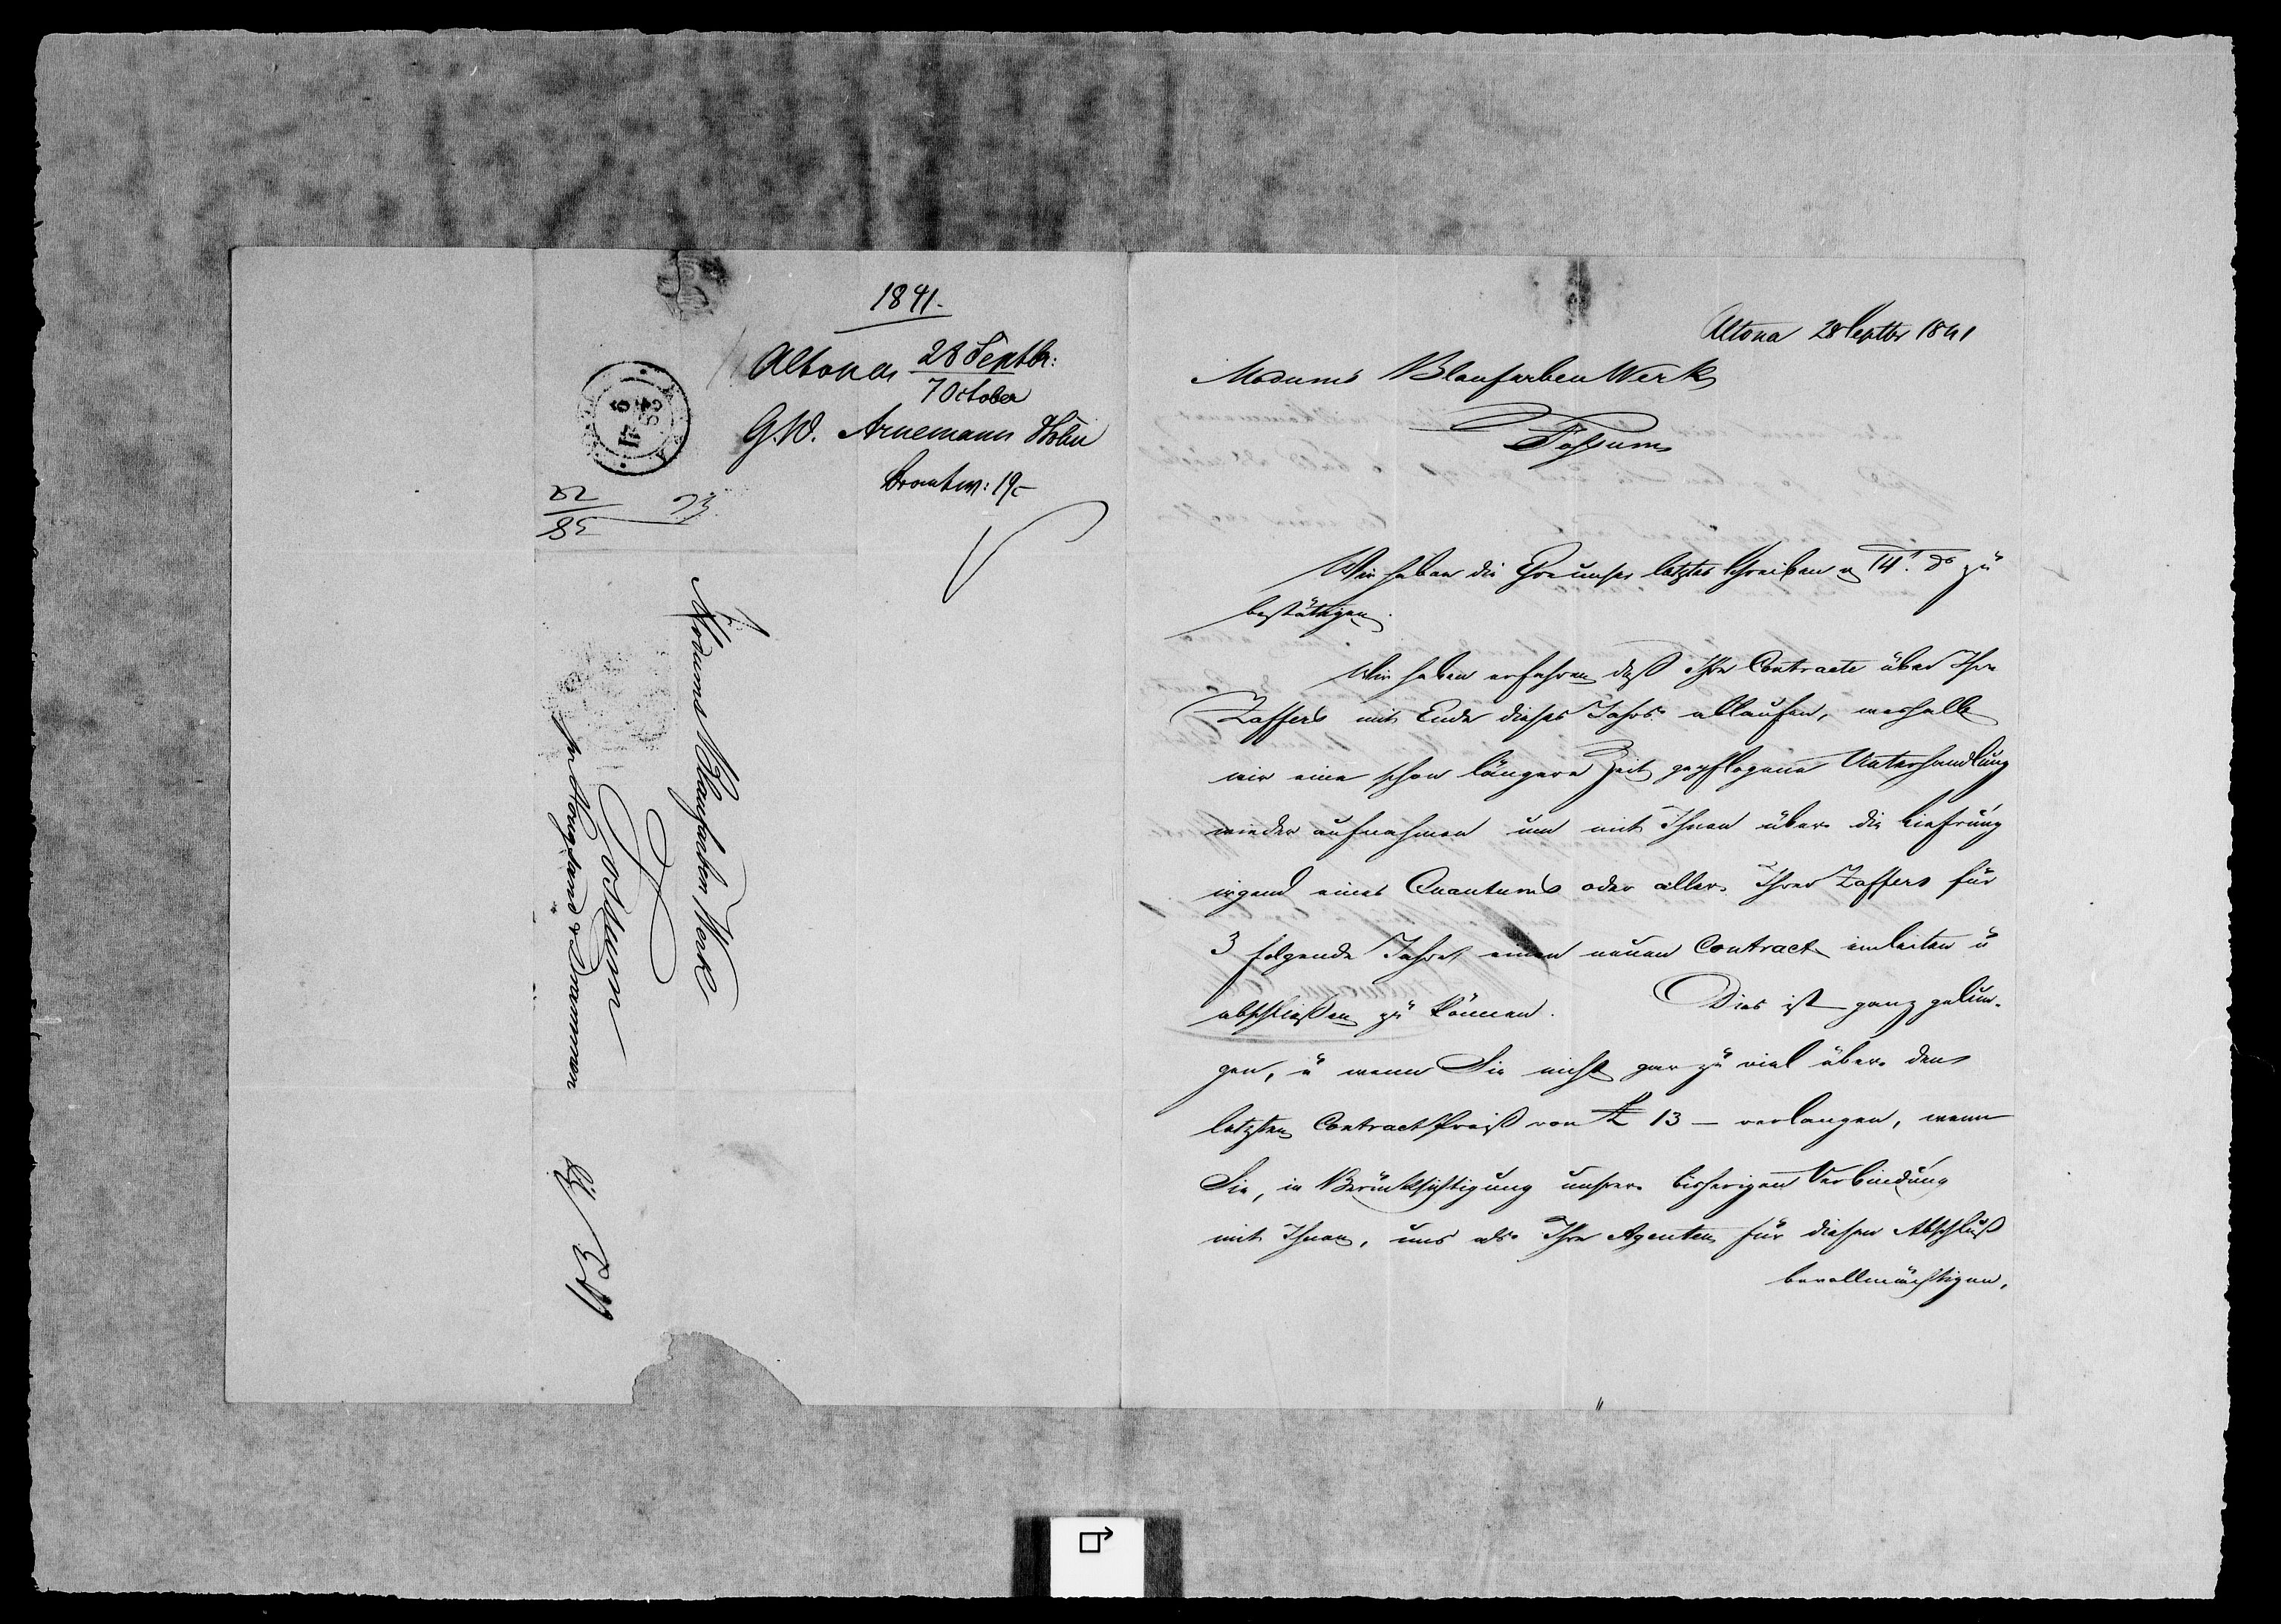 1841.
Altona 28 Septbr:
7 October
G. W. Arnemann & Sohn
Modums Blaufarben Werk
Fossum
pr Kongsberg & Drammen
Altona 28 Septbr 1841
Modums Blaufarben Werk
Fossum
Wir haben die Ehre unser letztes Schreiben v 14. ds zu
bestätigen.
Wir haben erfahren daß Ihre Contracte über Ihre
Zaffers mit Ende dieses Jahrs ablaufen, weshalb
wir eine schon längere Zeit gepflogene Unterhandlung
wieder aufnahmen um mit Ihnen über die Liefrung
irgend eines Quantums oder aller Ihrer Zaffers für
3 folgende Jahre einen neuen Contract einleiten u
abschließen zu können. Dies ist ganz gelun-
gen, u wenn Sie nicht gar zu viel über den
letzten Contract Preiß von £ 13 – verlangen, wenn
Sie, in Berücksichtigung unsrer bisherigen Verbindung
mit Ihnen, uns als Ihre Agenten für diesen Abschluß
bevollmächtigen,